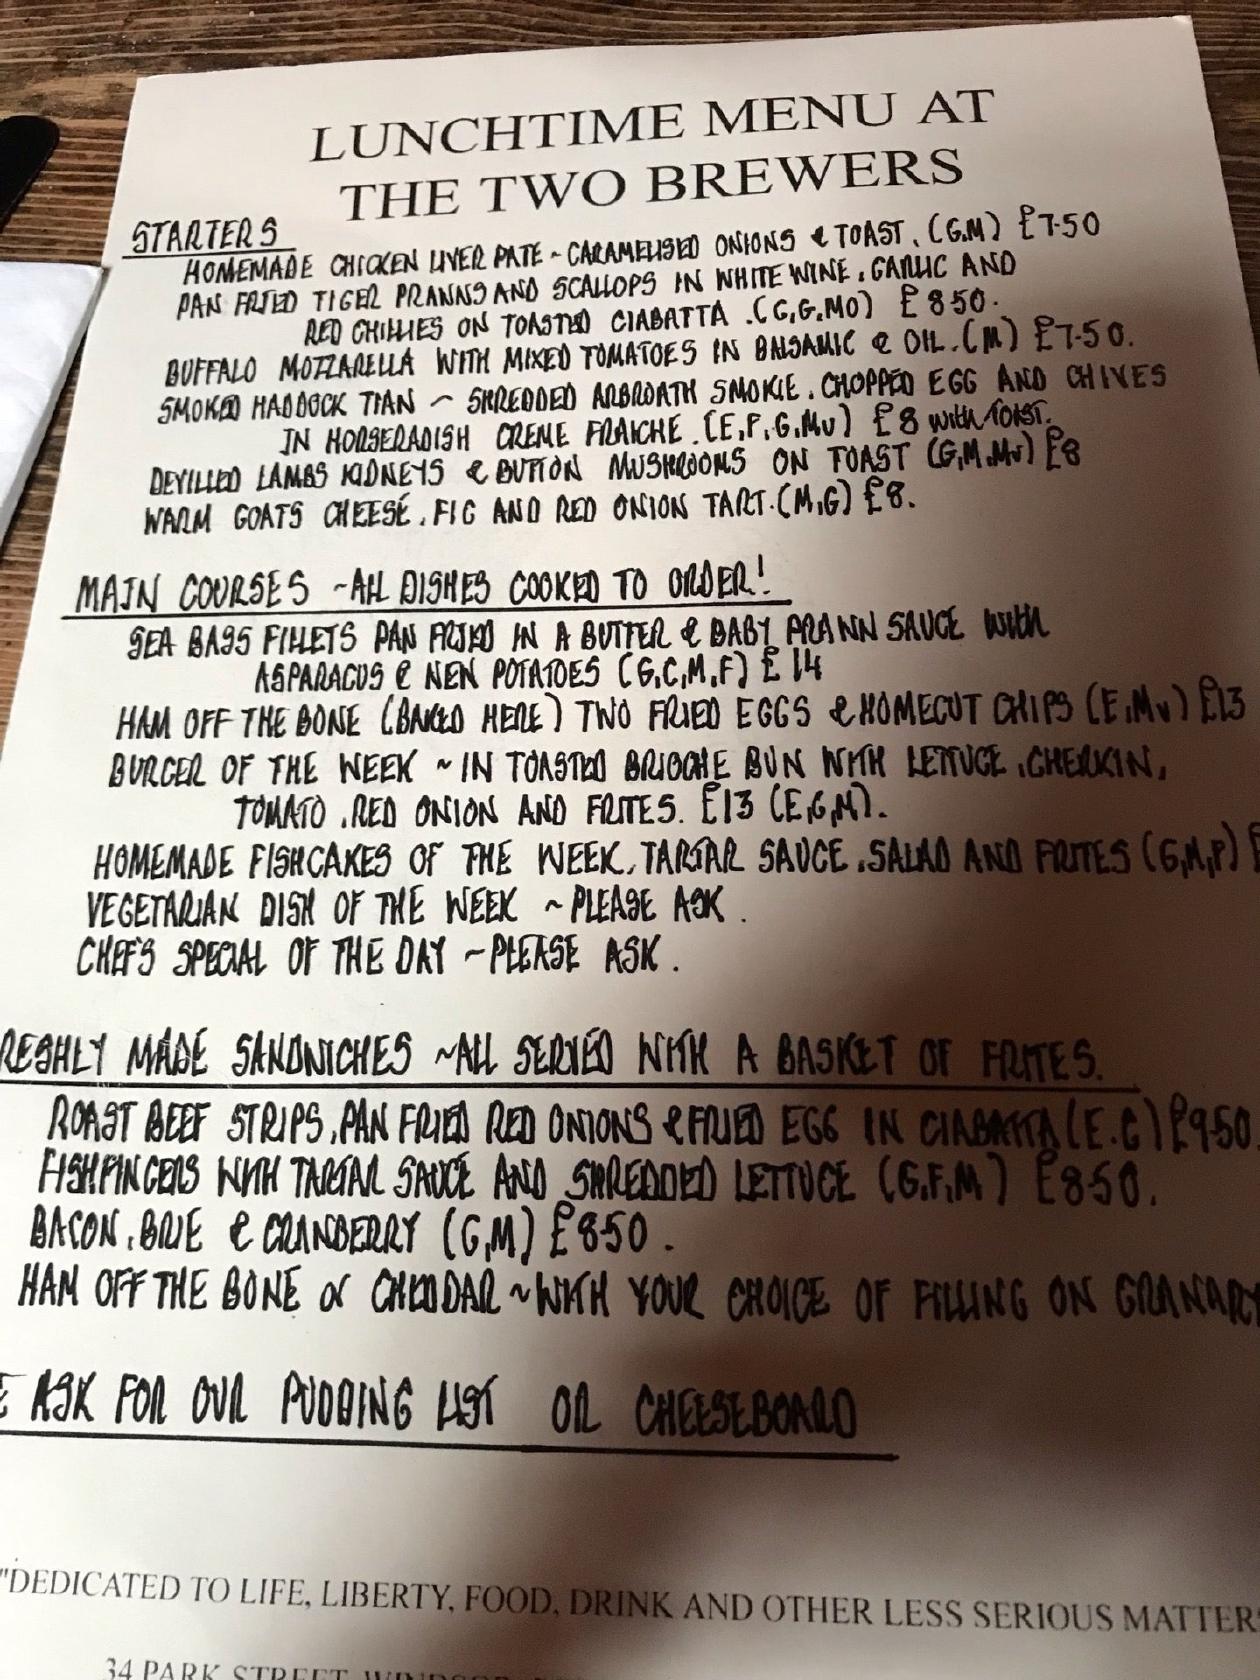 LUNCHTIME MENU AT
THE TWO BREWERS
STARTERS
HOMEMADE CHICKEN LIVER PATE ~ CARAMELISED ONIONS & TOAST. (G.M) £7.50
PAN FRIED TIGER PRAWNS AND SCALLOPS IN WHITE WINE, GARLIC AND
RED CHILLIES ON TOASTED CIABATTA. (C,G,MO) £8.50.
BUFFALO MOZZARELLA WITH MIXED TOMATOES IN BALSAMIC & OIL. (M) £7.50.
SMOKED HADDOCK TIAN ~ SHREDDED ARBROATH SMOKIE, CHOPPED EGG AND CHIVES
IN HORSERADISH CREME FRAICHE. (E,F,G,Mu) £8 with TOAST.
DEVILLED LAMBS KIDNEYS & BUTTON MUSHROOMS ON TOAST (G,M,Mu) £8
WARM GOATS CHEESE, FIG AND RED ONION TART. (M,G) £8.
MAIN COURSES ~ ALL DISHES COOKED TO ORDER!
SEA BASS FILLETS PAN FRIED IN A BUTTER & BABY PRAWN SAUCE with
ASPARAGUS & NEW POTATOES (G,C,M,F) £14
HAM OFF THE BONE (BAKED HERE) TWO FRIED EGGS & HOMECUT CHIPS (E,Mu) £13
BURGER OF THE WEEK ~ IN TOASTED BRIOCHE BUN WITH LETTUCE, GHERKIN,
TOMATO, RED ONION AND FRITES. £13 (E,G,M).
HOMEMADE FISHCAKES OF THE WEEK, TARTAR SAUCE, SALAD AND FRITES (G,M,F) £
VEGETARIAN DISH OF THE WEEK ~ PLEASE ASK.
CHEF'S SPECIAL OF THE DAY ~ PLEASE ASK.
RESHLY MADE SANDWICHES ~ ALL SERVED WITH A BASKET OF FRITES.
ROAST BEEF STRIPS, PAN FRIED RED ONIONS & FRIED EGG IN CIABATTA (E.G) £9.50
FISHFINGERS WITH TARTAR SAUCE AND SHREDDED LETTUCE (G,F,M) £8.50.
BACON, BRIE & CRANBERRY (G,M) £8.50.
HAM OFF THE BONE or CHEDDAR ~ WITH YOUR CHOICE OF FILLING ON GRANARY
E ASK FOR OUR PUDDING LIST OR CHEESEBOARD
"DEDICATED TO LIFE, LIBERTY, FOOD, DRINK AND OTHER LESS SERIOUS MATTER
34 PARK STREET, WINDSOR,